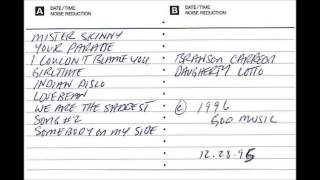 A DATE/TIME
NOISE REDUCTION
B DATE/TIME
NOISE REDUCTION
MISTER SKINNY
YOUR PARADE
I COULDN'T BLAME YOU
GIRLTIME
INDIAN DISCO
LOVEBEAN
WE ARE THE SADDEST
SONG #2
SOMEBODY ON MY SIDE
BRANSON CARREON
DAUGHERTY LOTTO
© 1996
GOD MUSIC
12.28.95